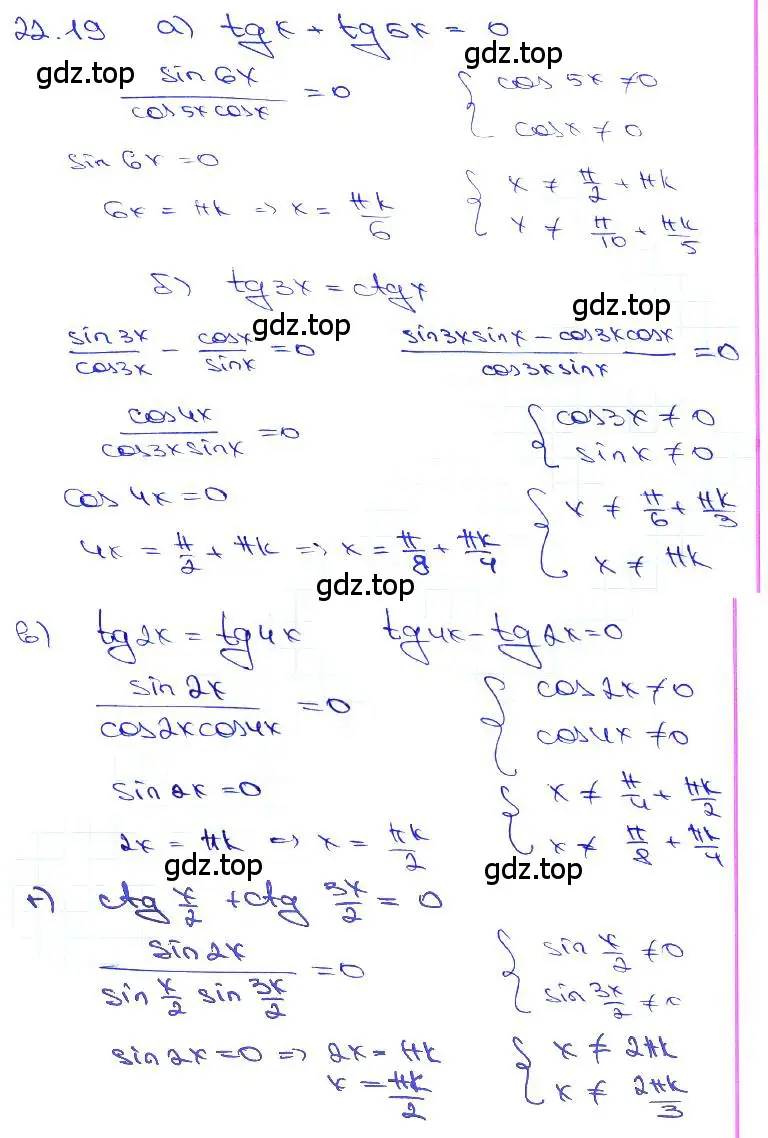 22.19 а) tgx + tg5x = 0
gdz.top
gdz.top
sin6x/(cos5x cosx) = 0 { cos 5x ≠ 0
cosx ≠ 0
sin 6x = 0
6x = πk ⇒ x = πk/6 { x ≠ π/2 + πk
x ≠ π/10 + πk/5
б) tg3x = ctgx
gdz.top
gdz.top
sin3x/cos3x - cosx/sinx = 0 (sin3x sinx - cos3x cosx)/(cos3x sinx) = 0
cos4x/(cos3x sinx) = 0 { cos3x ≠ 0
sinx ≠ 0
cos 4x = 0
4x = π/2 + πk ⇒ x = π/8 + πk/4 { x ≠ π/6 + πk/3
x ≠ πk
gdz.top
в) tg2x = tg4x tg4x - tg2x = 0
sin 2x/(cos2x cos4x) = 0 { cos2x ≠ 0
cos4x ≠ 0
sin 2x = 0
2x = πk ⇒ x = πk/2 { x ≠ π/4 + πk/2
x ≠ π/8 + πk/4
gdz.top
gdz.top
г) ctg x/2 + ctg 3x/2 = 0
sin2x/(sin x/2 sin 3x/2) = 0 { sin x/2 ≠ 0
sin 3x/2 ≠ 0
sin 2x = 0 ⇒ 2x = πk
x = πk/2 { x ≠ 2πk
x ≠ 2πk/3